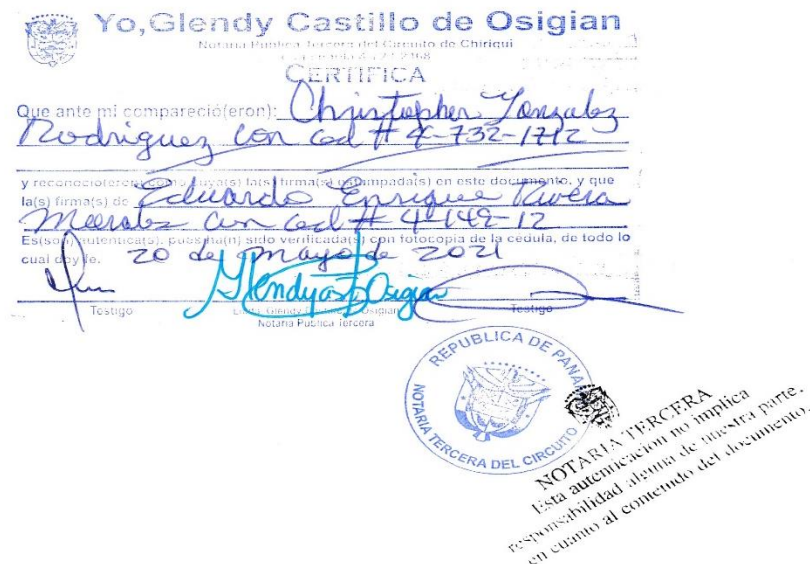 Yo, Glendy Castillo de Osigian
Notaria Pública Tercera del Circuito de Chiriquí
CERTIFICA
Que ante mi compareció(eron): Christopher Gonzalez
Rodriguez con ced # 4-732-1712
y reconoció(eron) como suya(s) la(s) firma(s) estampada(s) en este documento, y que
la(s) firma(s) de Eduardo Enrique Rivera
Morales con ced # 4-149-12
Es(son) autentica(s), pues ha(n) sido verificada(s) con fotocopia de la cedula, de todo lo
cual doy fe. 20 de mayo de 2021
Testigo
Testigo
Notaria Pública Tercera
REPUBLICA DE PANA
NOTARIA TERCERA DEL CIRCUITO
NOTARIA TERCERA
Esta autenticación no implica
responsabilidad alguna de nuestra parte,
en cuanto al contenido del documento.